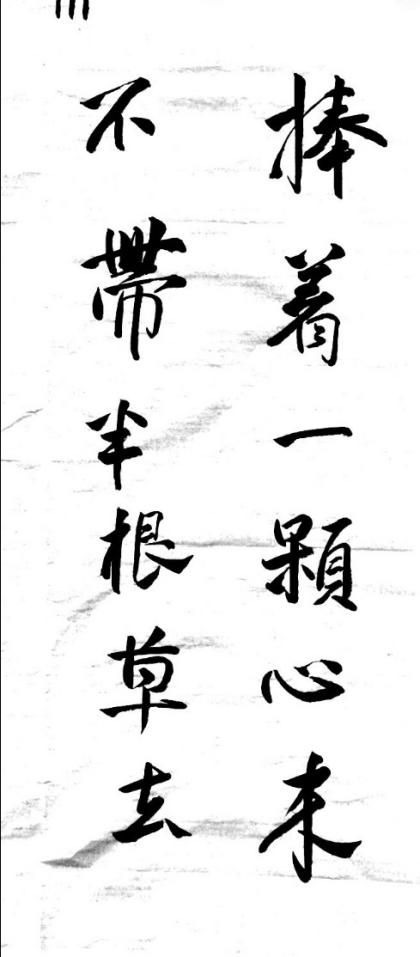 捧着一顆心来
不帶半根草去